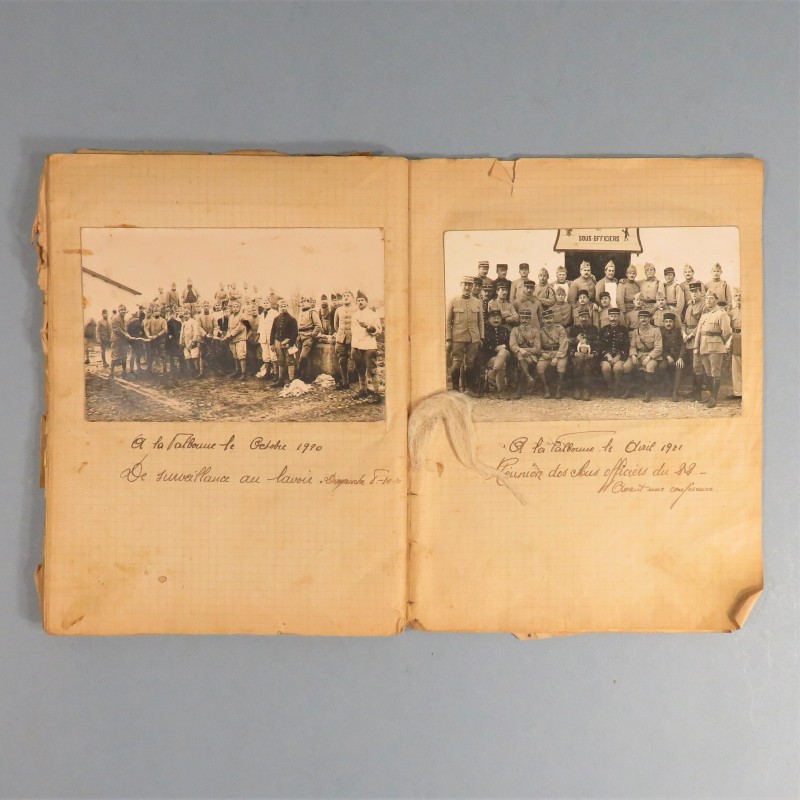 A la Valbonne le Octobre 1920
De surveillance au lavoir
SOUS-OFFICIERS
A la Valbonne le Avril 1921
Réunion des Sous officiers du 22-
Avant une conférence